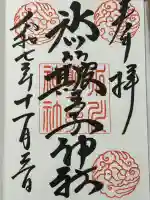 奉拝
氷川簸王子神社
令和七年十一月三日